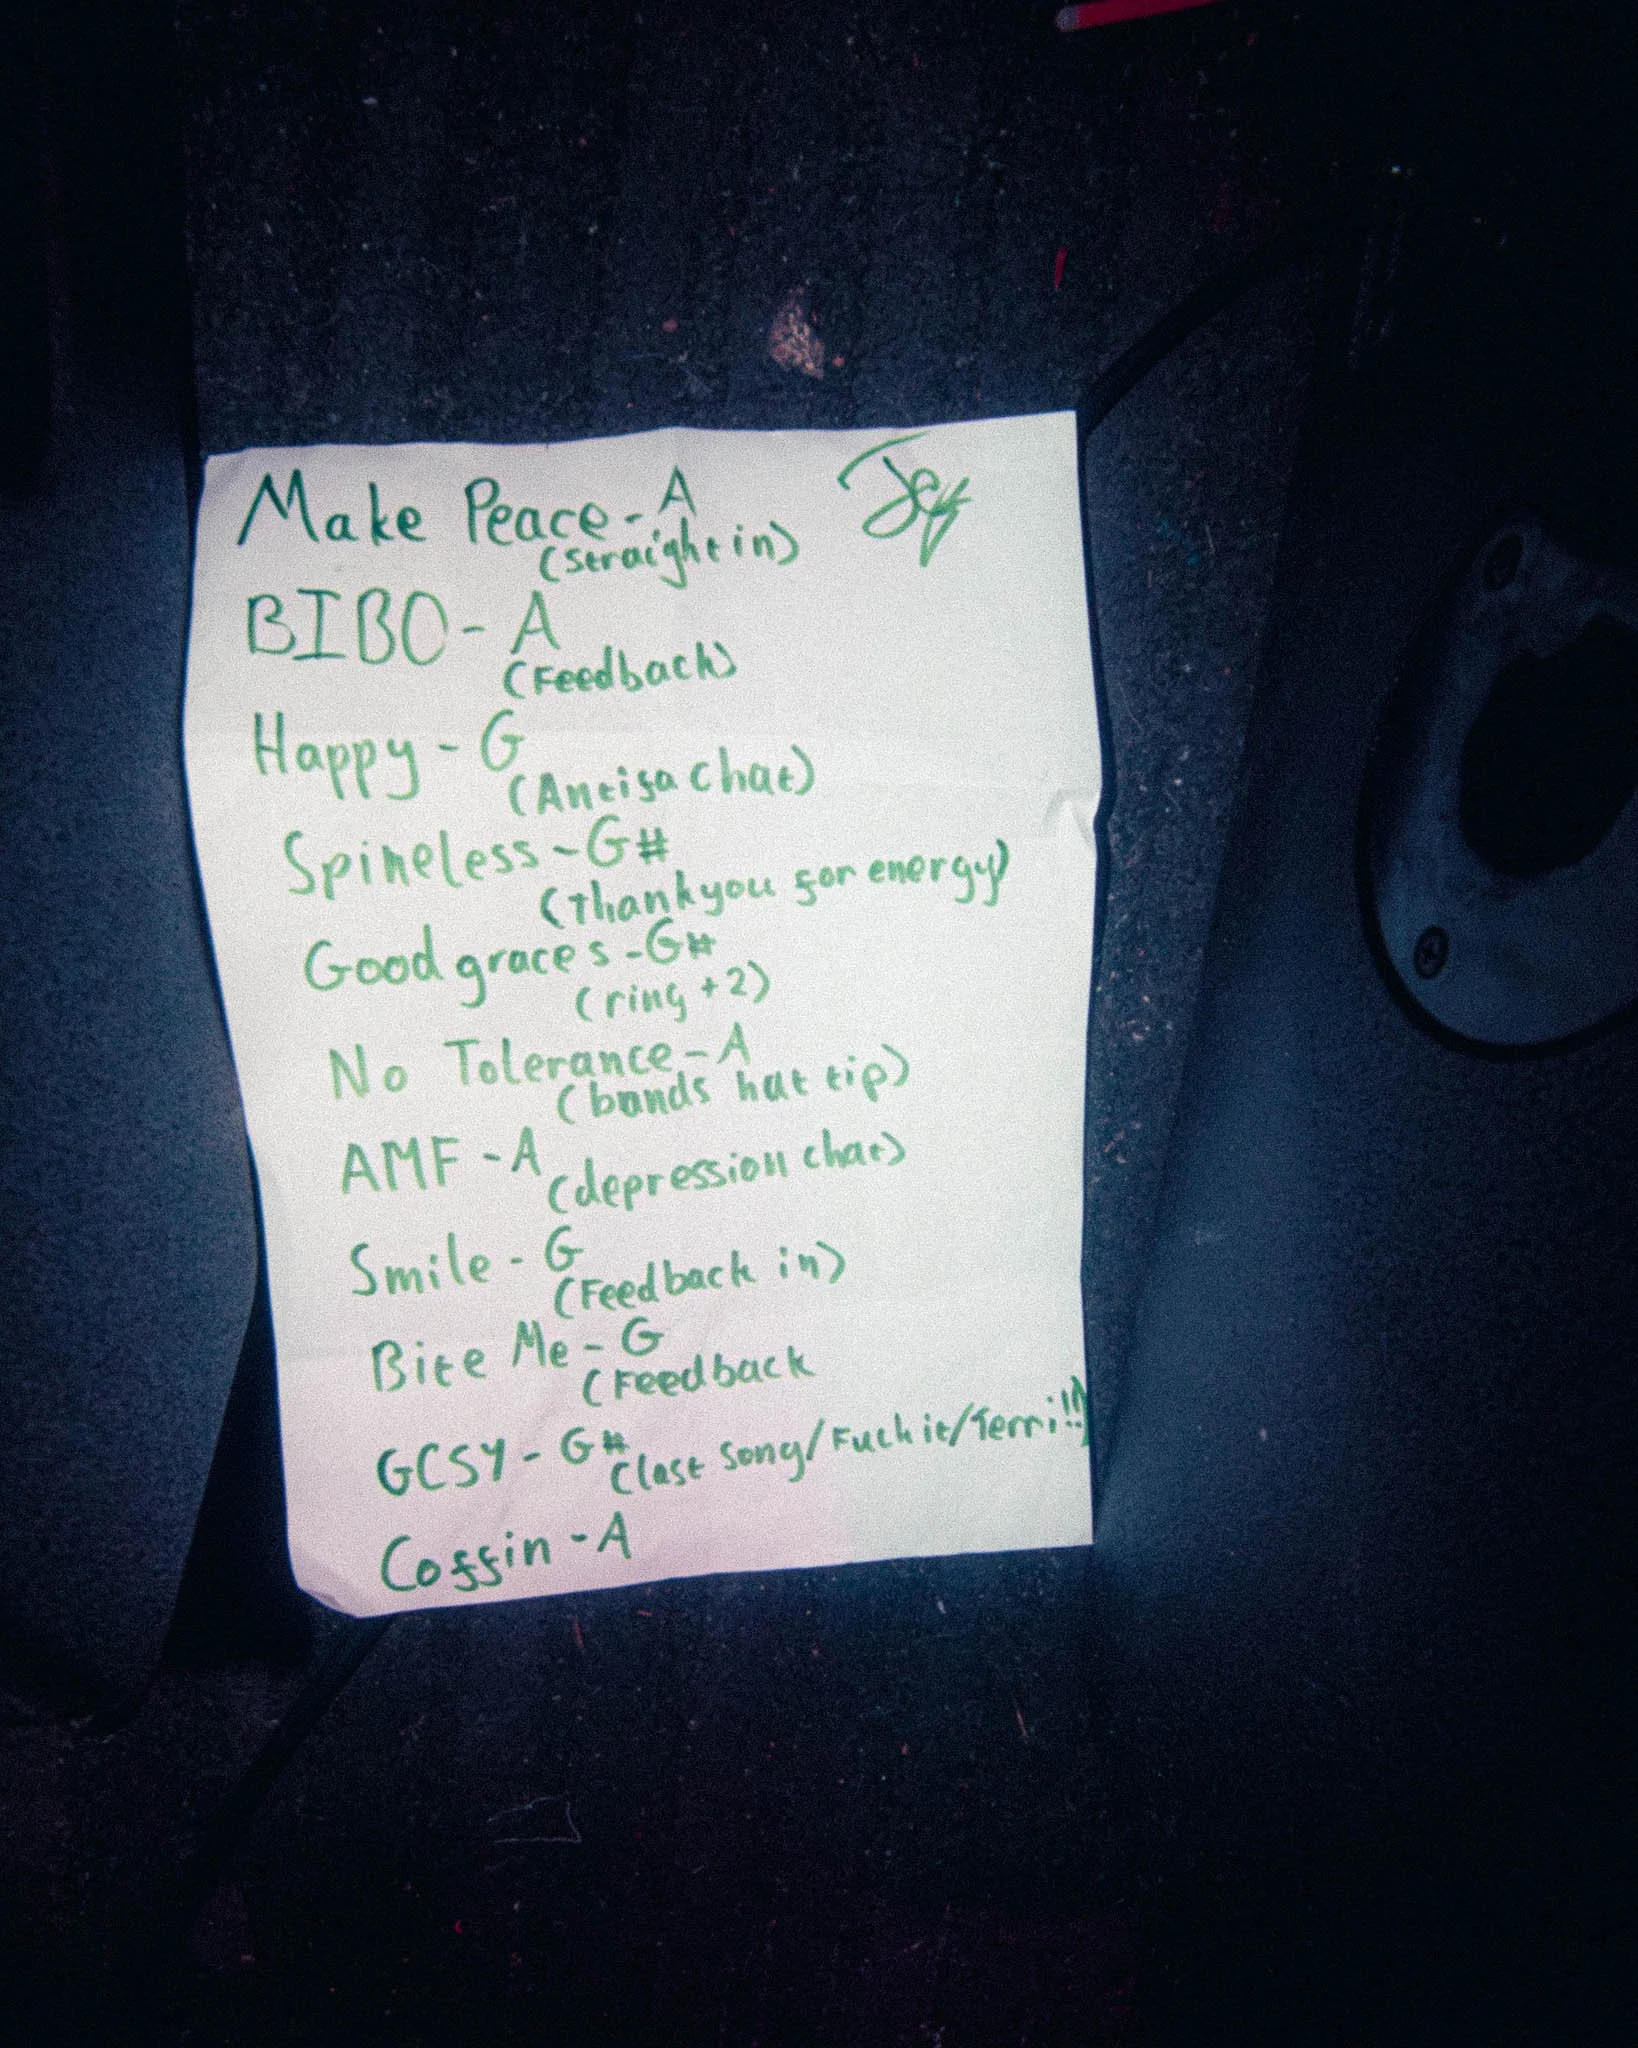 Make Peace - A
(straight in)
BIBO - A
(Feedback)
Happy - G
(Antifa chat)
Spineless - G#
(thank you for energy)
Good graces - G#
(ring +2)
No Tolerance - A
(bands hat tip)
AMF - A
(depression chat)
Smile - G
(Feedback in)
Bite Me - G
(Feedback
GCSY - G#
(last song/Fuck it/Terri!!)
Coffin - A